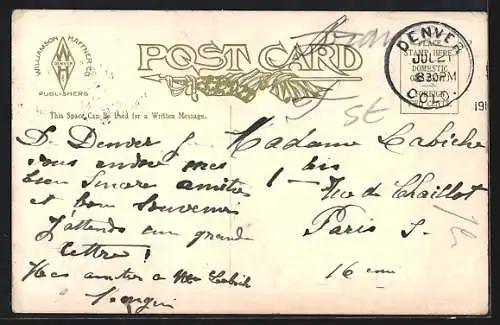 WILLIAMSON HAFFNER CO.
DENVER
PUBLISHERS
POST CARD
This Space Can Be Used for a Written Message.
DENVER
JUL 21
830PM
COLO.
PLACE
STAMP HERE
DOMESTIC
191
St
D. Denver je
vous
bien sincère amitié
et bon souvenir
J'attends une grande
lettre!
Mes amitiés à Mr Labiche
Madame Labiche
1 bis
Rue de Chaillot
Paris
16 eme